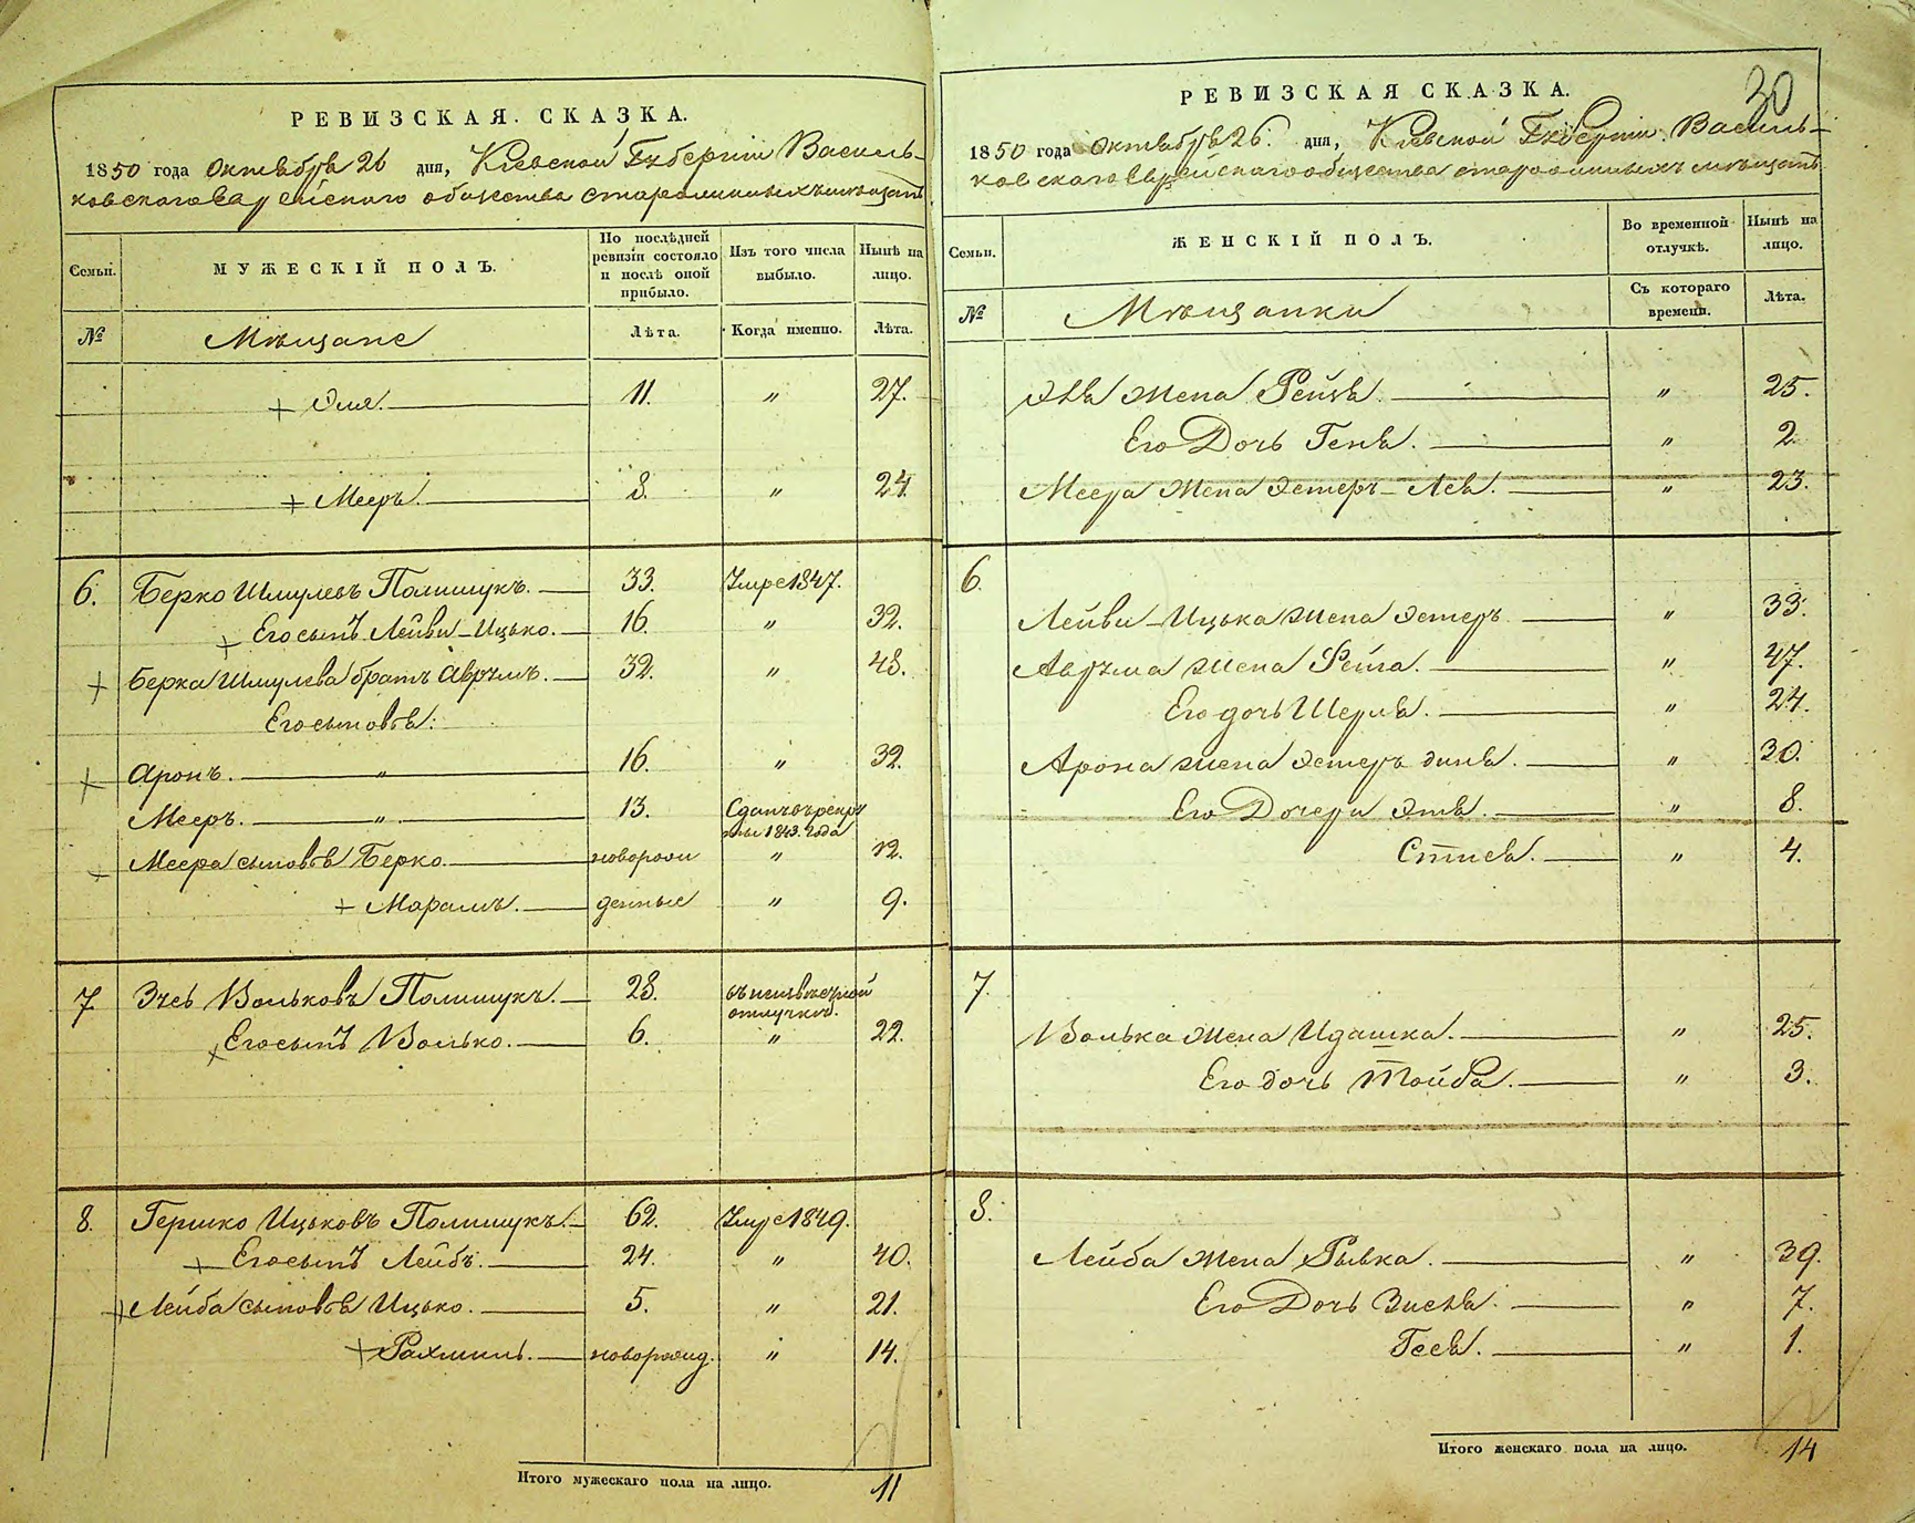 РЕВИЗСКАЯ СКАЗКА.
1850 года Октября 26 дня, Кіевской Губерніи Василь-
ковскаго Еврейскаго общества старожилыхъ мѣщанъ
Семьи.
МУЖЕСКІЙ ПОЛЪ.
По послѣдней ревизіи состояло и послѣ оной прибыло.
Изъ того числа выбыло.
Нынѣ на лицо.
№
Мѣщане
Лѣта.
Когда именно.
Лѣта.
+ Эля. 11. " 27.
+ Мееръ. 8. " 24.
6. Берко Шмулевъ Полищукъ. 33. Умре 1847.
+ Его сынъ Лейви-Ицько. 16. " 32.
+ Берка Шмулева братъ Аврумъ. 32. " 48.
Его сыновья:
+ Аронъ. " 16. " 32.
Мееръ. " 13. Сданъ въ рекру
ты 1843. года
+ Меера сыновья Берко. новорож " 12.
+ Марамъ. денные " 9.
7 Зусь Вольковъ Полищукъ. 28. въ неизвѣстной
отлучкѣ.
+ Его сынъ Волько. 6. " 22.
8. Гершко Ицьковъ Полищукъ. 62. Умре 1849.
+ Его сынъ Лейбъ. 24. " 40.
+ Лейба сыновья Ицько. 5. " 21.
+ Рахмиль. новорожд. " 14.
Итого мужескаго пола на лицо. 11
30
РЕВИЗСКАЯ СКАЗКА.
1850 года Октября 26. дня, Кіевской Губерніи Василь-
ковскаго Еврейскаго общества старожилыхъ мѣщанъ
Семьи.
ЖЕНСКІЙ ПОЛЪ.
Во временной отлучкѣ.
Нынѣ на лицо.
№
Мѣщанки
Съ котораго времени.
Лѣта.
Эля жена Рейзя. " 25.
Его Дочь Геня. " 2
Меера жена Эстеръ-Лея. " 23.
6.
Лейви-Ицька жена Эстеръ " 33.
Аврума жена Фейга. " 47.
Его дочь Шерля. " 24.
Арона жена Эстеръ дина. " 30.
Его Дочери Этя. " 8.
Стися. " 4.
7.
Волька жена Идашка. " 25.
Его дочь Тойба. " 3.
8.
Лейба жена Рывка. " 39.
Его Дочь Зисля. " 7.
Гися. " 1.
Итого женскаго пола на лицо. 14